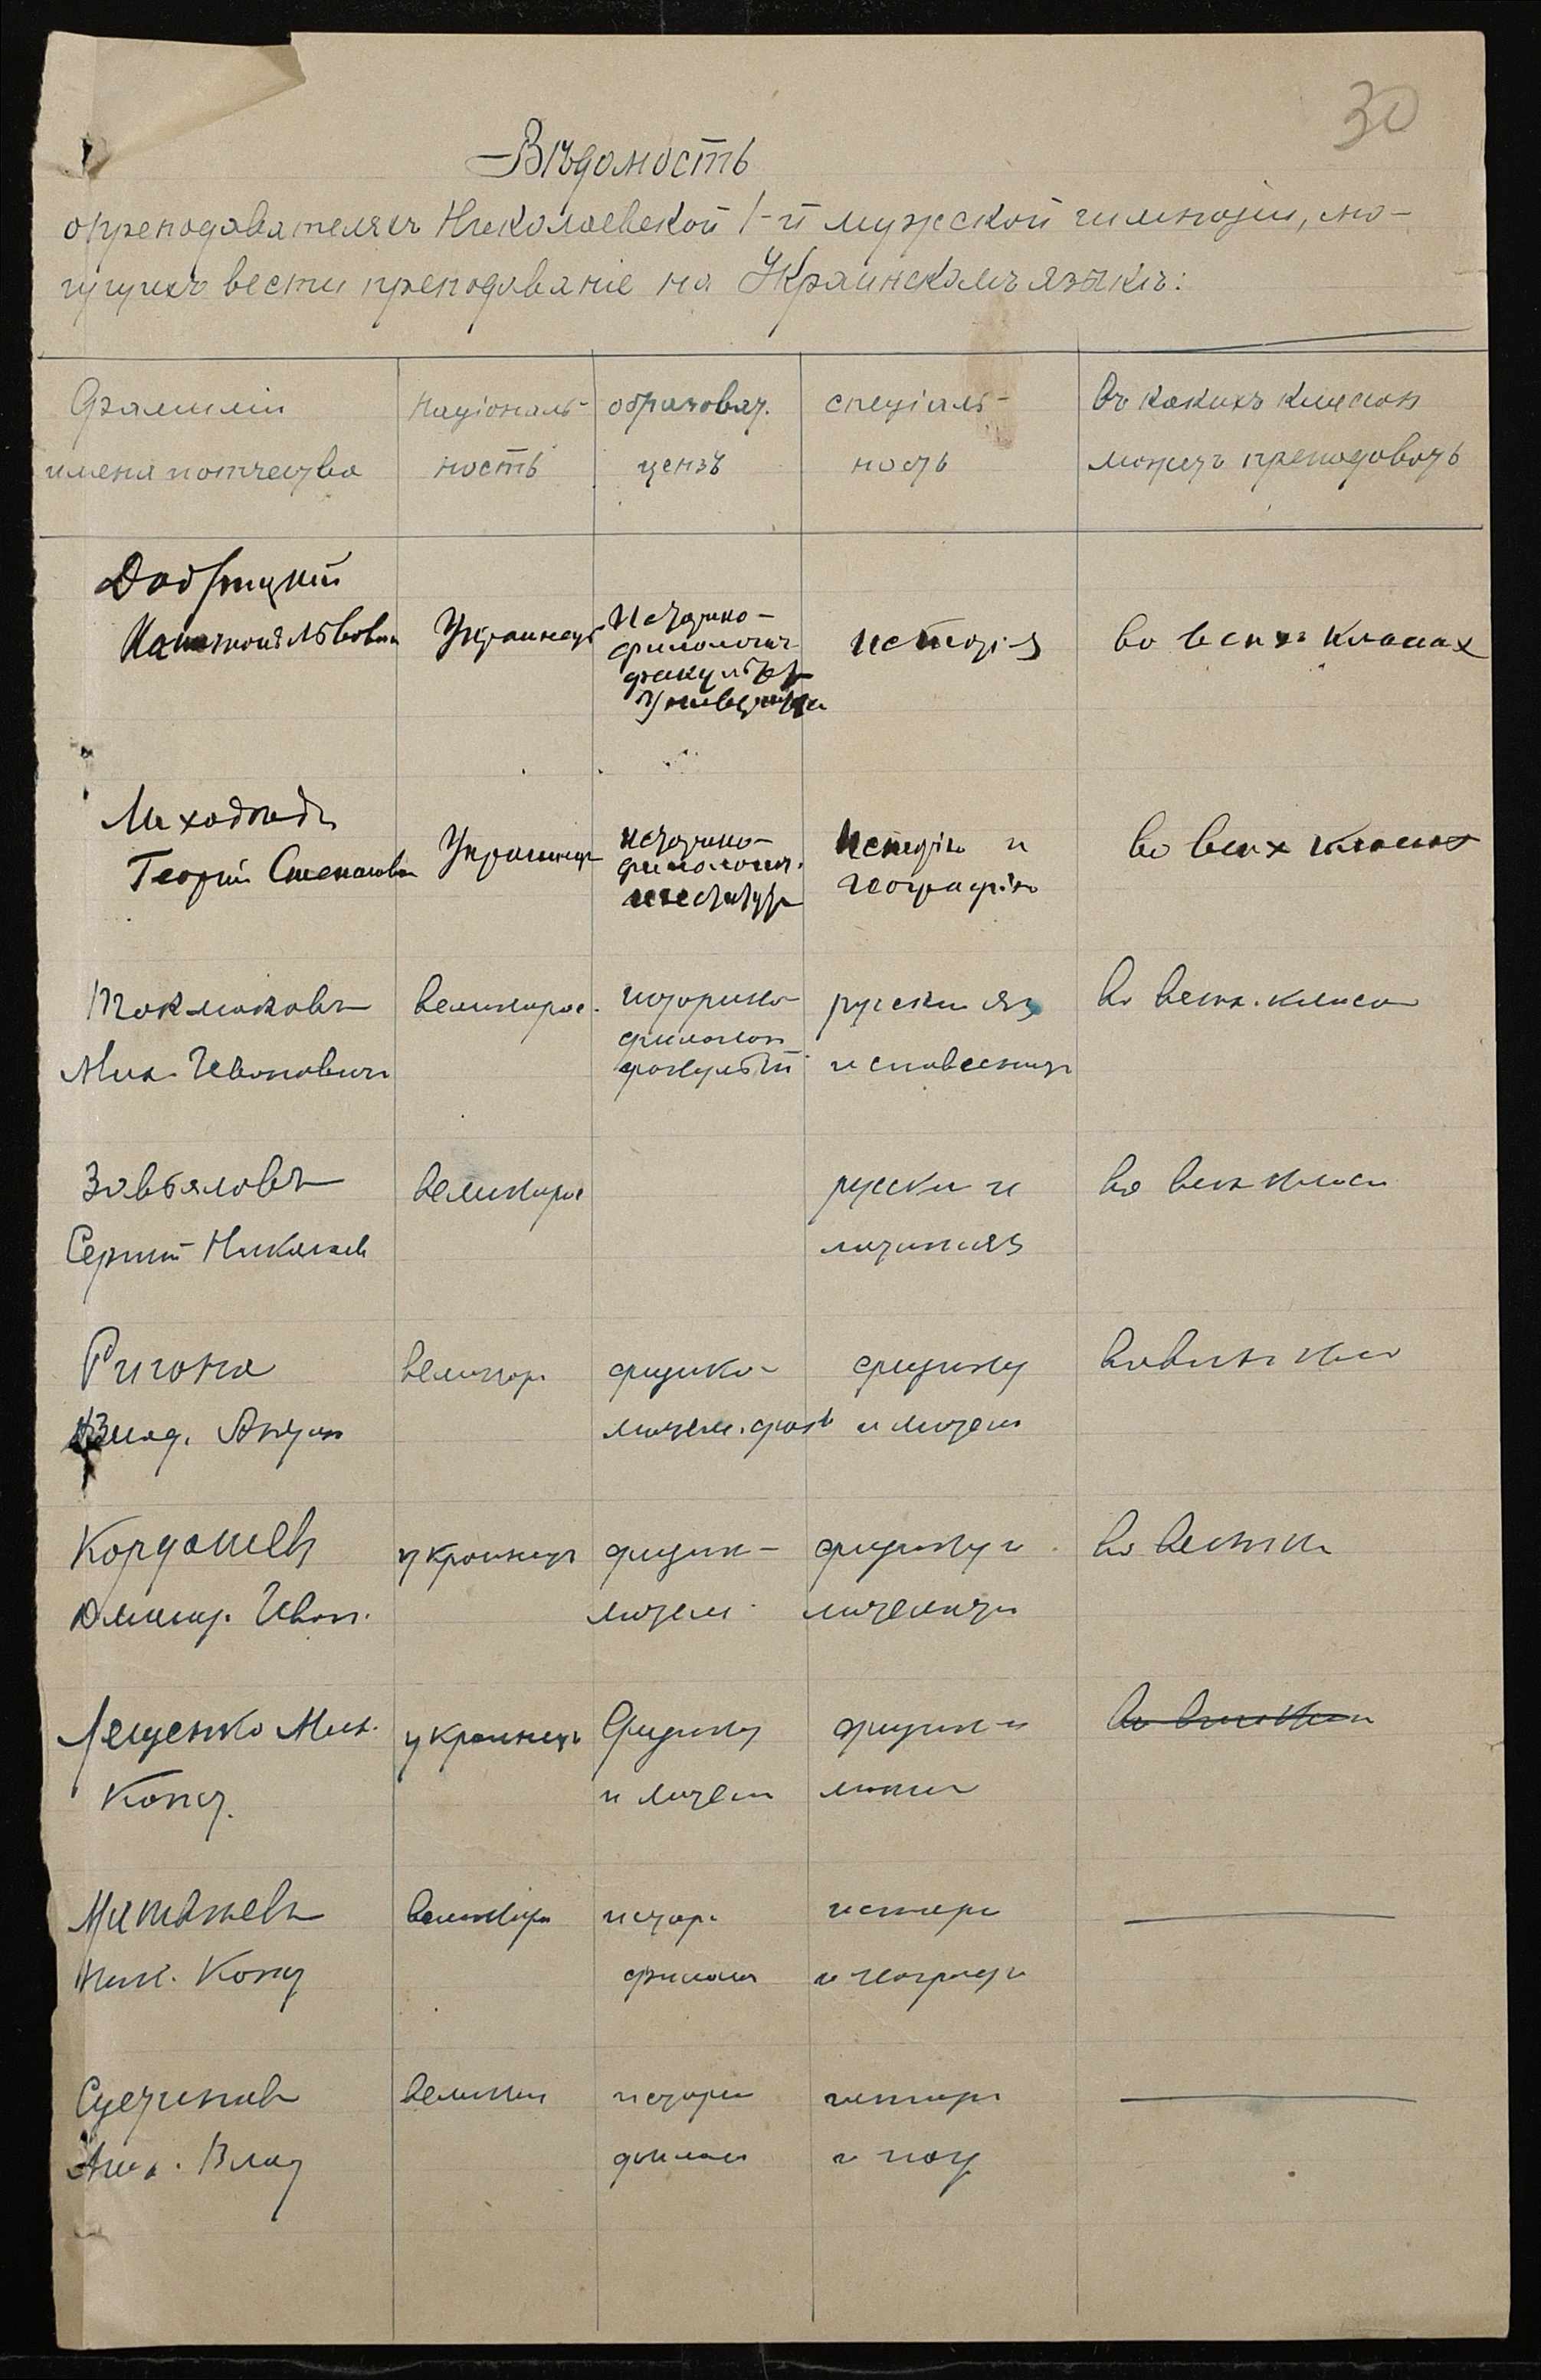 30
Вѣдомость
о преподавателяхъ Николаевской 1-й мужской гимназіи, мо-
гущихъ вести преподаваніе на Украинскомъ языкѣ:
Фамиліи
имена и отчества
національ-
ность
образоват.
цензъ
спеціаль-
ность
въ какихъ классахъ
можетъ преподавать
Львович
Украинецъ
Историко-
филологич.
факультетъ
Университета
исторія
во всѣхъ классах
Георгій Степанович
Украинецъ
Историко-
филологич.
институтъ
Исторію и
географію
во всех классах
Токмаковъ
Мих. Ивановичъ
великорос.
историко-
филолог
факультет
русскій яз
и словесность
во всехъ. класса
Завьяловъ
Сергий Николаев
великорос
русский и
латин яз
во всех класс
Ригона
великор.
физико-
матем. фак
физику
и матем
во всех клас
Кордашев
Дмитр. Иван.
украинецъ
физик-
матем.
физику и
математ
во всех кл
Лещенко Мих.
Конст.
украинецъ
Физику
и матем
физик и
матем
Ник. Конст
великор
истор.
филолог
истори
и географ
Влад
велик
истори
филол
истор
и геог